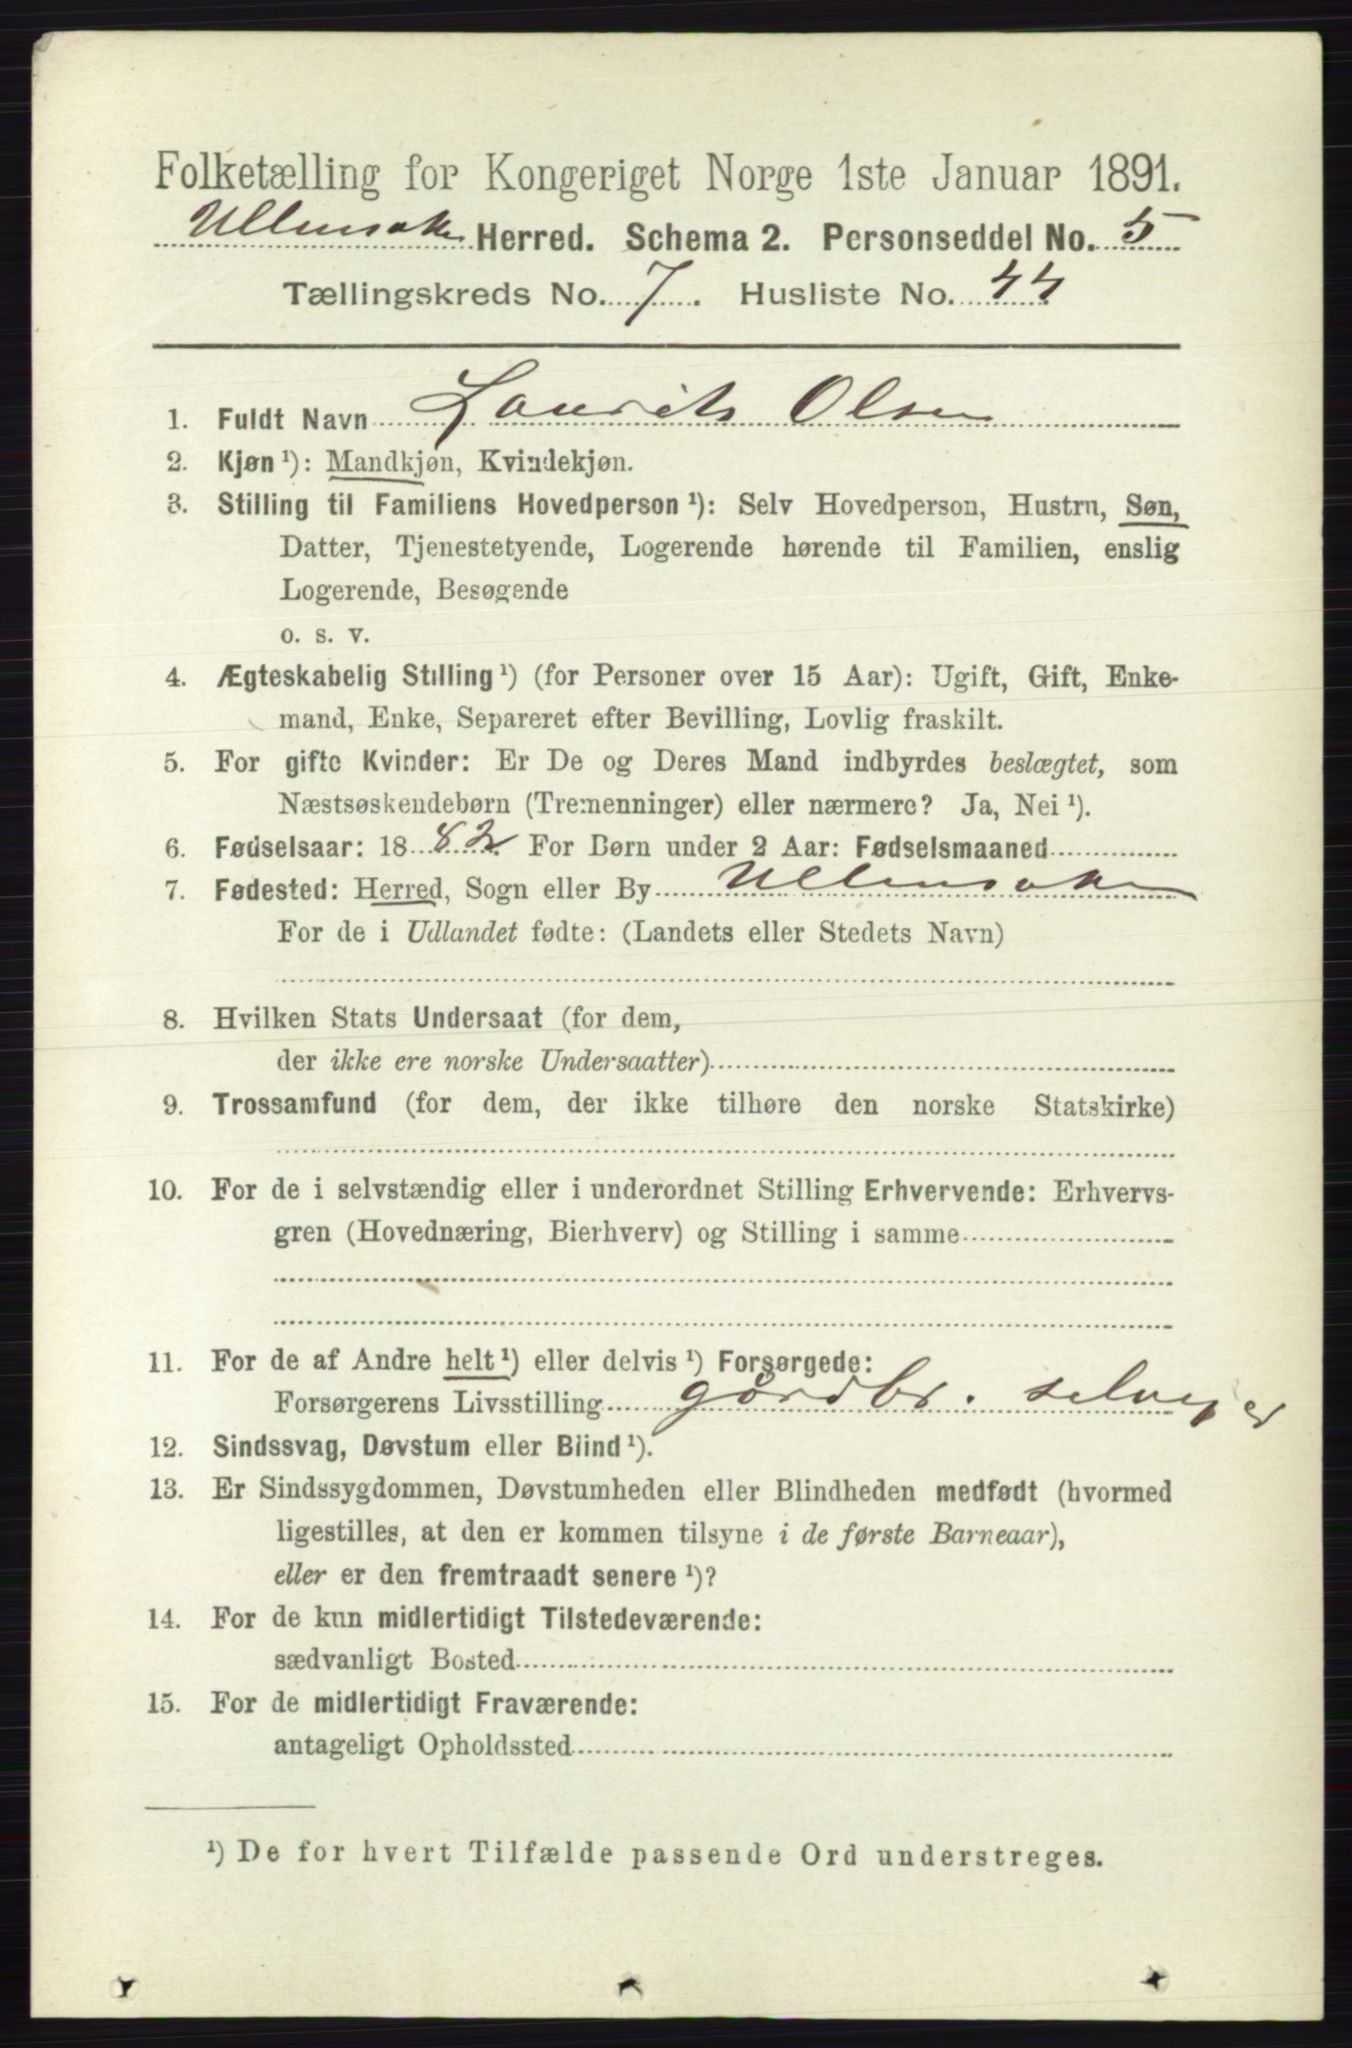 Folketælling for Kongeriget Norge 1ste Januar 1891.
Ullensaker Herred. Schema 2. Personseddel No. 5
Tællingskreds No. 7. Husliste No. 44
1. Fuldt Navn Laurits Olsen
2. Kjøn ¹): Mandkjøn, Kvindekjøn.
3. Stilling til Familiens Hovedperson ¹): Selv Hovedperson, Hustru, Søn,
Datter, Tjenestetyende, Logerende hørende til Familien, enslig
Logerende, Besøgende
o. s. v.
4. Ægteskabelig Stilling ¹) (for Personer over 15 Aar): Ugift, Gift, Enke-
mand, Enke, Separeret efter Bevilling, Lovlig fraskilt.
5. For gifte Kvinder: Er De og Deres Mand indbyrdes beslægtet, som
Næstsøskendebørn (Tremenninger) eller nærmere? Ja, Nei ¹).
6. Fødselsaar: 1882 For Børn under 2 Aar: Fødselsmaaned
7. Fødested: Herred, Sogn eller By Ullensaker
For de i Udlandet fødte: (Landets eller Stedets Navn)
8. Hvilken Stats Undersaat (for dem,
der ikke ere norske Undersaatter)
9. Trossamfund (for dem, der ikke tilhøre den norske Statskirke)
10. For de i selvstændig eller i underordnet Stilling Erhvervende: Erhvervs-
gren (Hovednæring, Bierhverv) og Stilling i samme
11. For de af Andre helt ¹) eller delvis ¹) Forsørgede:
Forsørgerens Livsstilling gårdbr. selveier
12. Sindssvag, Døvstum eller Blind ¹).
13. Er Sindssygdommen, Døvstumheden eller Blindheden medfødt (hvormed
ligestilles, at den er kommen tilsyne i de første Barneaar),
eller er den fremtraadt senere ¹)?
14. For de kun midlertidigt Tilstedeværende:
sædvanligt Bosted
15. For de midlertidigt Fraværende:
antageligt Opholdssted
¹) De for hvert Tilfælde passende Ord understreges.